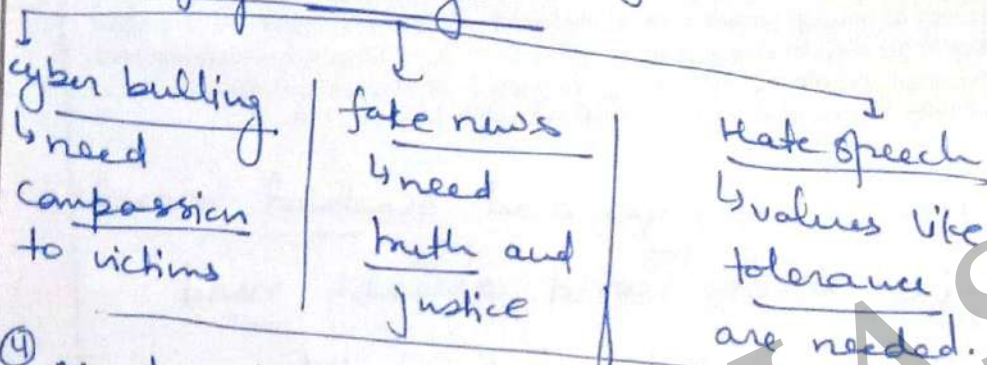 cyber bulling
↳ need
compassion
to victims
fake news
↳ need
truth and
justice
Hate speech
↳ values like
tolerance
are needed.
④